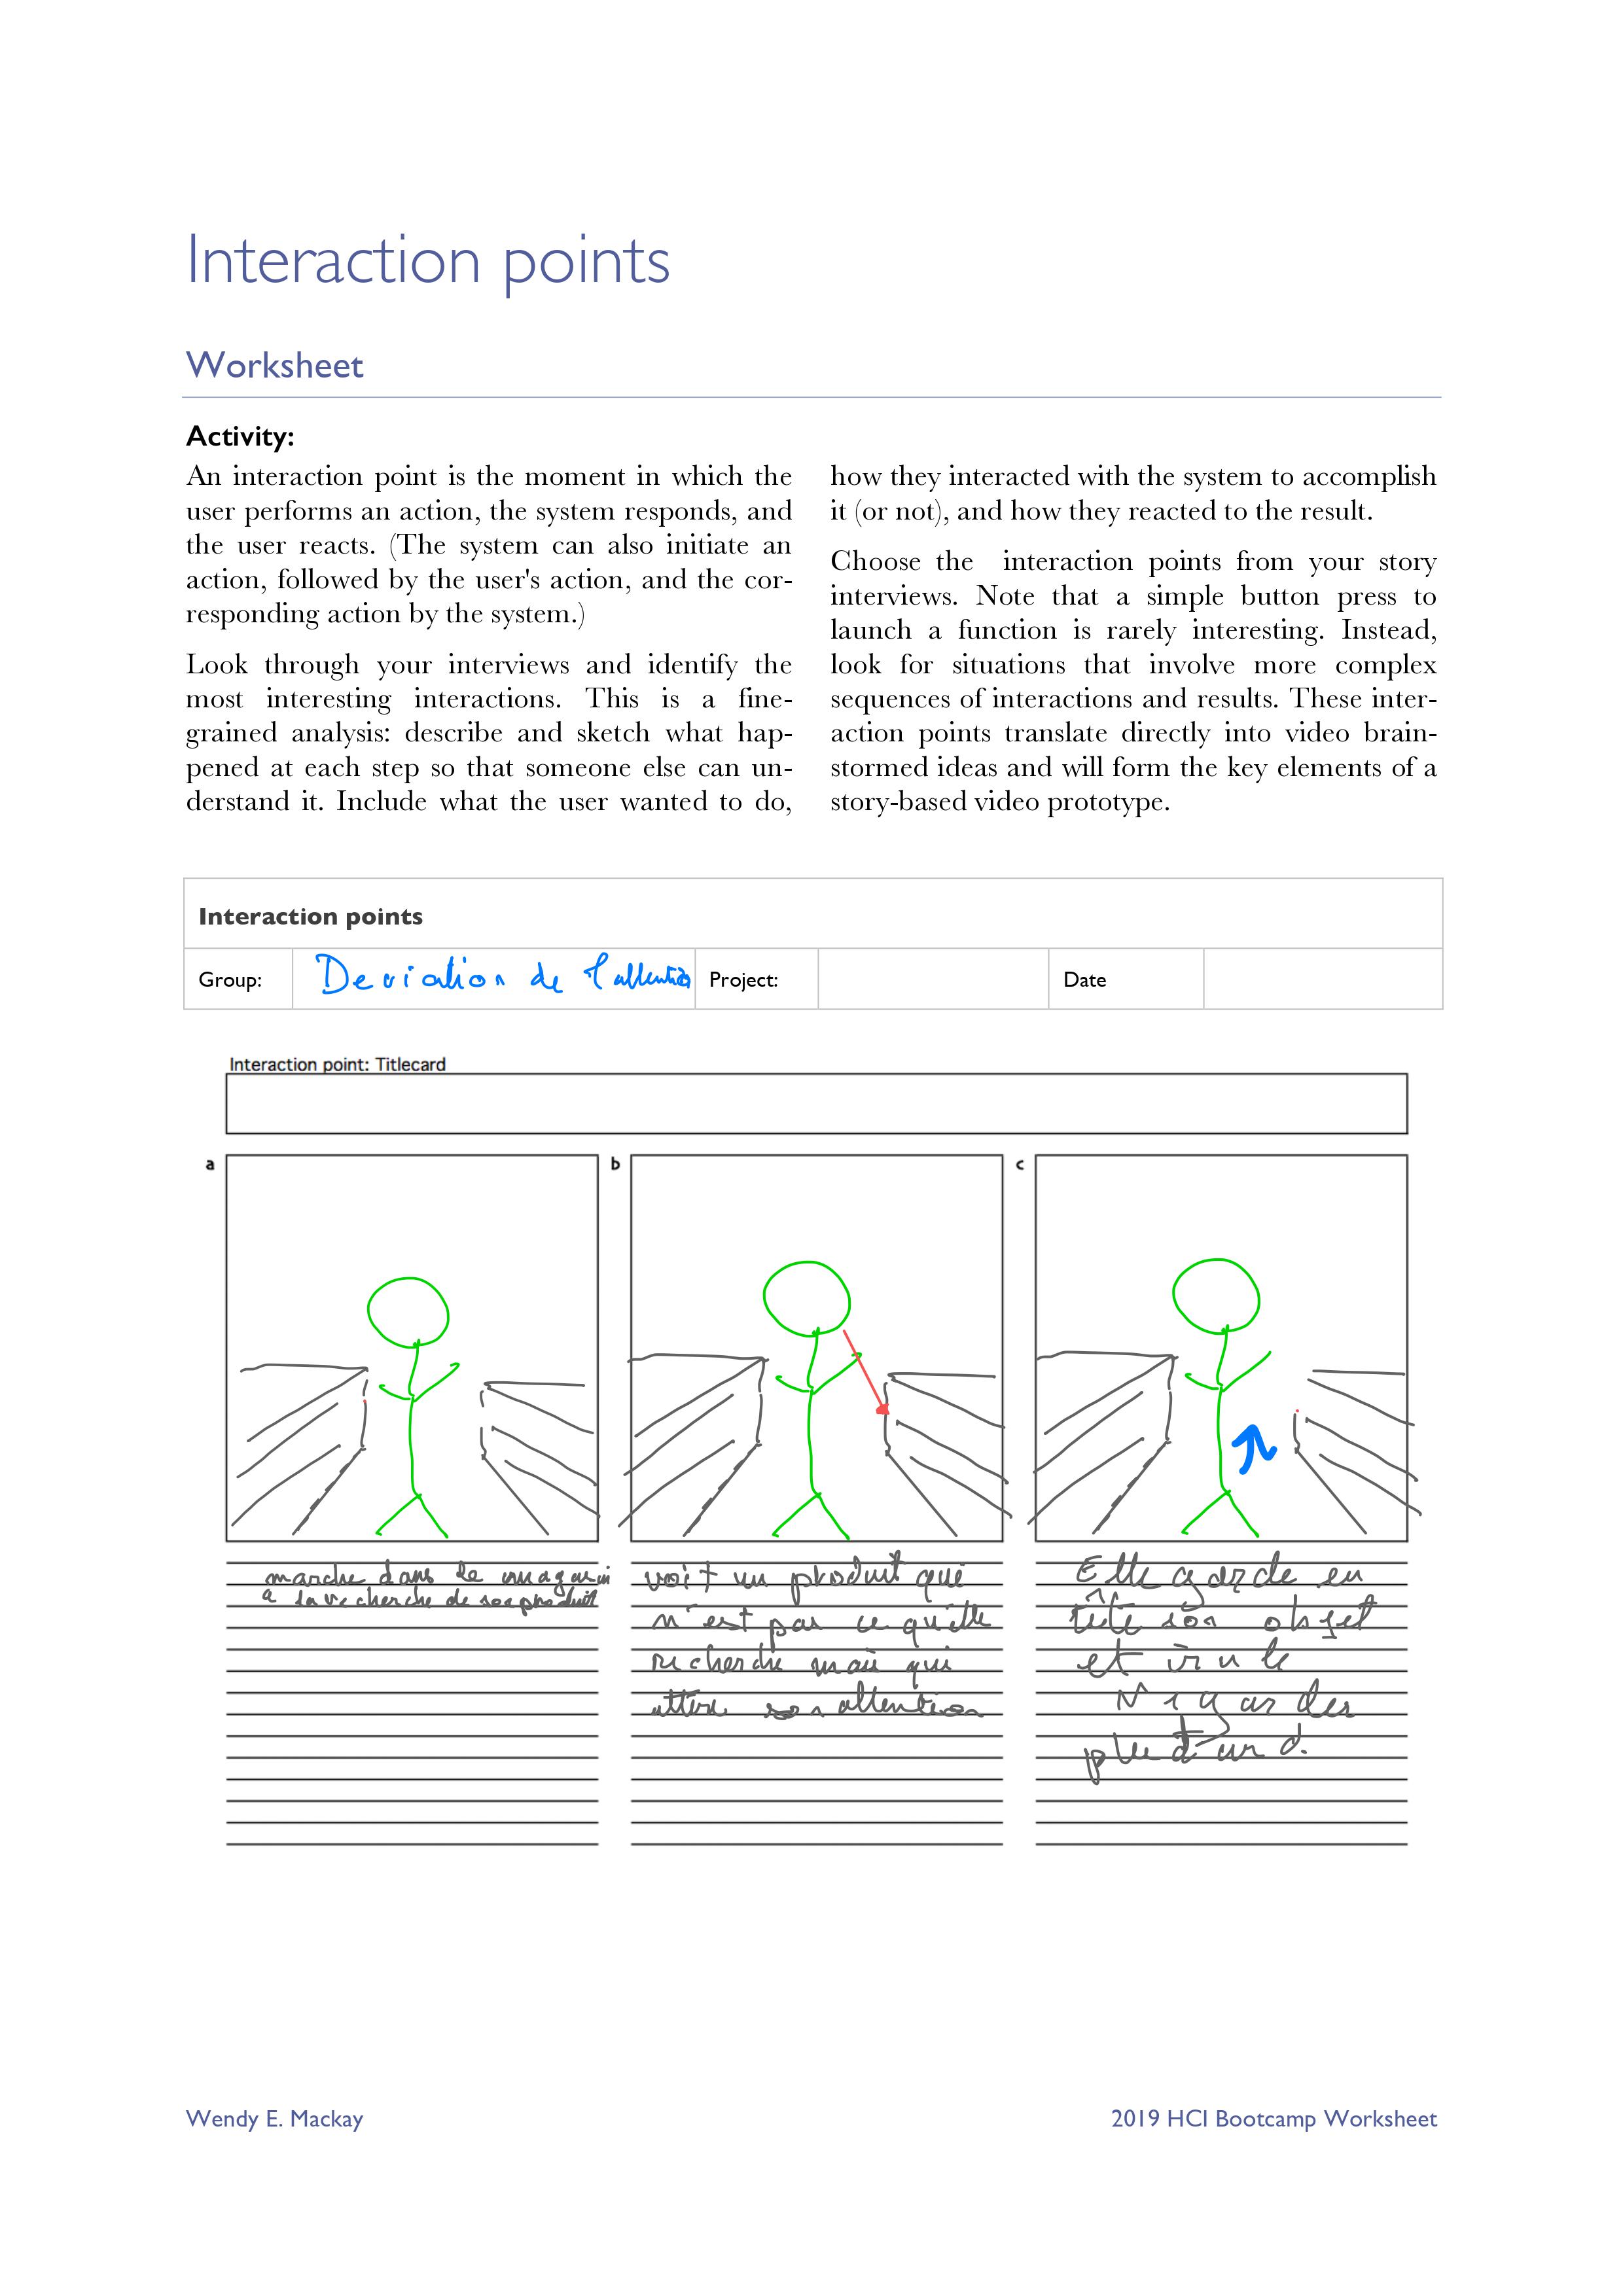 Interaction points
Worksheet
Activity:
An interaction point is the moment in which the
user performs an action, the system responds, and
the user reacts. (The system can also initiate an
action, followed by the user's action, and the cor-
responding action by the system.)
Look through your interviews and identify the
most interesting interactions. This is a fine-
grained analysis: describe and sketch what hap-
pened at each step so that someone else can un-
derstand it. Include what the user wanted to do,
how they interacted with the system to accomplish
it (or not), and how they reacted to the result.
Choose the interaction points from your story
interviews. Note that a simple button press to
launch a function is rarely interesting. Instead,
look for situations that involve more complex
sequences of interactions and results. These inter-
action points translate directly into video brain-
stormed ideas and will form the key elements of a
story-based video prototype.
Interaction points
Group: Deviation de l'attention Project: Date
Interaction point: Titlecard
a
marche dans le magasin
a la recherche de son produit
b
voit un produit qui
n'est pas ce qu'elle
recherche mais qui
attire son attention
c
Elle garde en
tête son objet
et ira le
regarder
plus tard.
Wendy E. Mackay
2019 HCI Bootcamp Worksheet